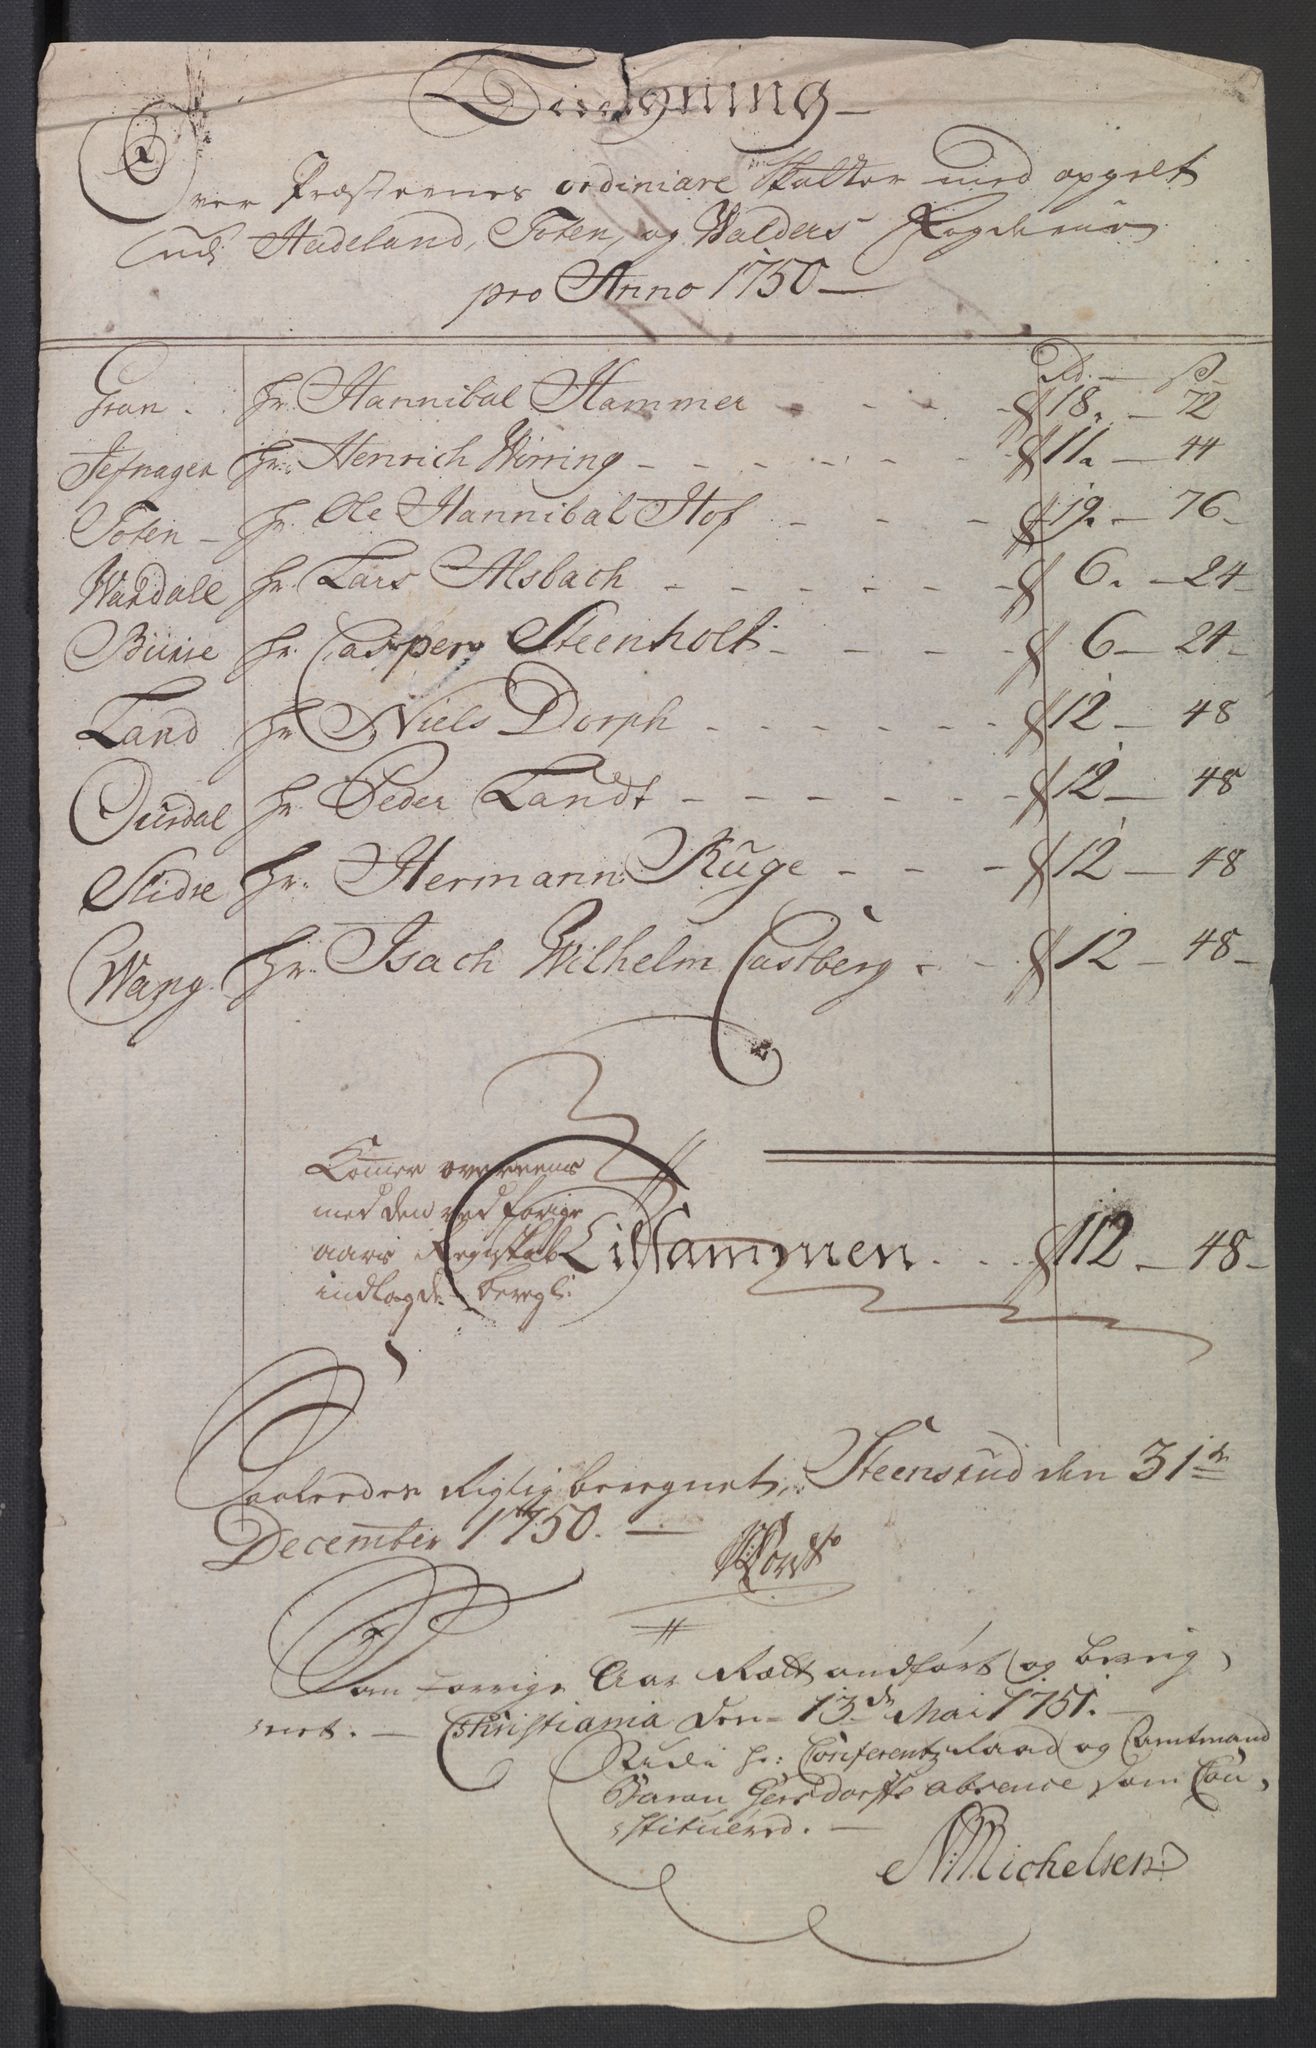 Beregning
Over Præsternes ordiniare Skatter med opgelt
udi Hadeland, Toten, og Walders Fogderie
pro Anno 1750
Rd. — ß
Gran. hr. Hannibal Hammer - - - - 18. — 72
Jefnager hr. Henrich Wirring - - - - - - 11. — 44
Toten — hr. Ole Hannibal Hof - - - 19. — 76
Wardall hr. Lars Alsbach - - - - - - 6. — 24
Biirie hr. Casper Steenholt - - - - 6 — 24
Land hr. Niels Dorph - - - - - - 12 — 48
Ourdal hr. Peder Landt - - - - - - 12 — 48
Slidre hr. Hermann Ruge - - - 12 — 48
Wang hr. Isach Wilhelm Castberg - - 12 — 48
Komer overeens
med den ved forige
aars Regnskab
indlagde beregl:
Tilsammen . . . 112 — 48
Saaleedes Rigtig beregnet, Steensrud den 31te
December 1750. —
Som forrige Aar Rætt andført og bereig,
net. — Christiania den 13de Mai 1751. —
Udi hr: Conferentz Raad og Amtmand
Baron Gersdorffs absence som Con,
stitueered. —
N Michelsen